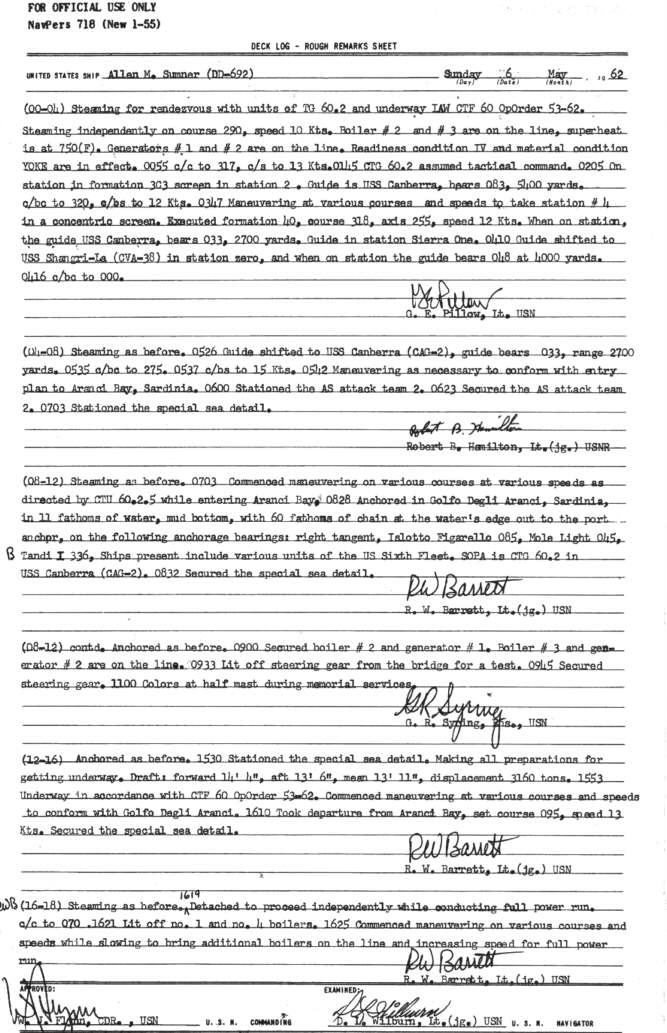 FOR OFFICIAL USE ONLY
NavPers 718 (New 1-55)
DECK LOG - ROUGH REMARKS SHEET
UNITED STATES SHIP Allen M. Sumner (DD-692) Sunday 6 May , 19 62
(Day) (Date) (Month)
(00-04) Steaming for rendezvous with units of TG 60.2 and underway IAW CTF 60 OpOrder 53-62.
Steaming independently on course 290, speed 10 Kts. Boiler # 2 and # 3 are on the line, superheat
is at 750(F). Generators # 1 and # 2 are on the line. Readiness condition IV and material condition
YOKE are in effect. 0055 c/c to 317, c/s to 13 Kts.0145 CTG 60.2 assumed tactical command. 0205 On
station in formation 3C3 screen in station 2 . Guide is USS Canberra, bears 083, 5400 yards.
c/bc to 320, c/bs to 12 Kts. 0347 Maneuvering at various pourses and speeds to take station # 4
in a concentric screen. Executed formation 40, course 318, axis 255, speed 12 Kts. When on station,
the guide USS Canberra, bears 033, 2700 yards. Guide in station Sierra One. 0410 Guide shifted to
USS Shangri-La (CVA-38) in station zero, and when on station the guide bears 048 at 4000 yards.
0416 c/bc to 000.
G. E. Pillow, Lt. USN
(04-08) Steaming as before. 0526 Guide shifted to USS Canberra (CAG-2), guide bears 033, range 2700
yards. 0535 c/bc to 275. 0537 c/bs to 15 Kts. 0542 Maneuvering as necessary to conform with entry
plan to Aranci Bay, Sardinia. 0600 Stationed the AS attack team 2. 0623 Secured the AS attack team
2. 0703 Stationed the special sea detail.
Robert B. Hamilton
Robert B. Hamilton, Lt.(jg.) USNR
(08-12) Steaming as before. 0703 Commenced maneuvering on various courses at various speeds as
directed by CTU 60.2.5 while entering Aranci Bay. 0828 Anchored in Golfo Degli Aranci, Sardinia,
in 11 fathoms of water, mud bottom, with 60 fathoms of chain at the water's edge out to the port
anchpr, on the following anchorage bearings: right tangent, Islotto Figarello 085, Mole Light 045,
B Tandi I 336, Ships present include various units of the US Sixth Fleet. SOPA is CTG 60.2 in
USS Canberra (CAG-2). 0832 Secured the special sea detail.
RW Barrett
R. W. Barrett, Lt.(jg.) USN
(08-12) contd. Anchored as before. 0900 Secured boiler # 2 and generator # 1. Boiler # 3 and gen-
erator # 2 are on the line. 0933 Lit off steering gear from the bridge for a test. 0945 Secured
steering gear. 1100 Colors at half mast during memorial services.
GR Syring
G. R. Syring, Ens., USN
(12-16) Anchored as before. 1530 Stationed the special sea detail. Making all preparations for
getting underway. Draft: forward 14' 4", aft 13' 6", mean 13' 11", displacement 3160 tons. 1553
Underway in accordance with CTF 60 OpOrder 53-62. Commenced maneuvering at various courses and speeds
to conform with Golfo Degli Aranci. 1610 Took departure from Aranci Bay, set course 095, speed 13
Kts. Secured the special sea detail.
RW Barrett
R. W. Barrett, Lt.(jg.) USN
1619
RWB (16-18) Steaming as before. Detached to proceed independently while conducting full power run.
c/c to 070 .1621 Lit off no. 1 and no. 4 boilers. 1625 Commenced maneuvering on various courses and
speeds while slowing to bring additional boilers on the line and increasing speed for full power
run.
RW Barrett
R. W. Barrett, Lt.(jg.) USN
APPROVED: EXAMINED:
Flynn, CDR. , USN U. S. N. COMMANDING D. L. Wilburn, Lt.(jg.) USN U. S. N. NAVIGATOR